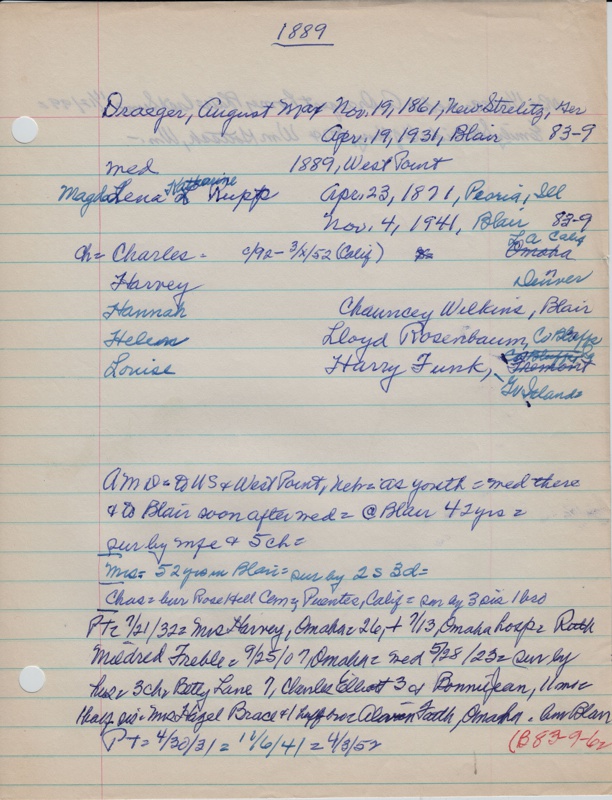 1889
Draeger, August Max Nov. 19, 1861, New Strelitz, Ger
Apr. 19, 1931, Blair 83-9
med 1889, West Point
Magda Lena Katharine L Rupp Apr. 23, 1871, Peoria, Ill
Nov. 4, 1941, Blair 83-9
La Calif
Ch= Charles - c/92 - 3/x/52 (Calif) Omaha
Harvey Denver
Hannah Chauncey Wilkins, Blair
Helen Lloyd Rosenbaum, Co Bluffs
Louise Harry Funk, Fremont
Gr Island
AMD = to US & West Point, Neb = as youth = med there
& to Blair soon after med = @ Blair 42 yrs =
sur by mfe & 5 ch =
Mrs = 52 yrs in Blair = sur by 2 s 3 d =
Chas = bur Rose Hill Cem, Puente, Calif = sur by 3 sis 1 bro
Pt = 7/21/32 = Mrs Harvey, Omaha = 26, + 7/13, Omaha hosp = Ruth
Mildred Treble = 9/25/07, Omaha = med 5/28/23 = sur by
hus = 3 ch = Betty Lane 7, Charles Elliott 3 & Bonnijean, 11 mos =
half sis = Mrs Hazel Brace & 1 half bro Fodh, Omaha = bur Blair
Pt = 4/30/31 = 11/6/41 = 4/3/52
(B83-9-62